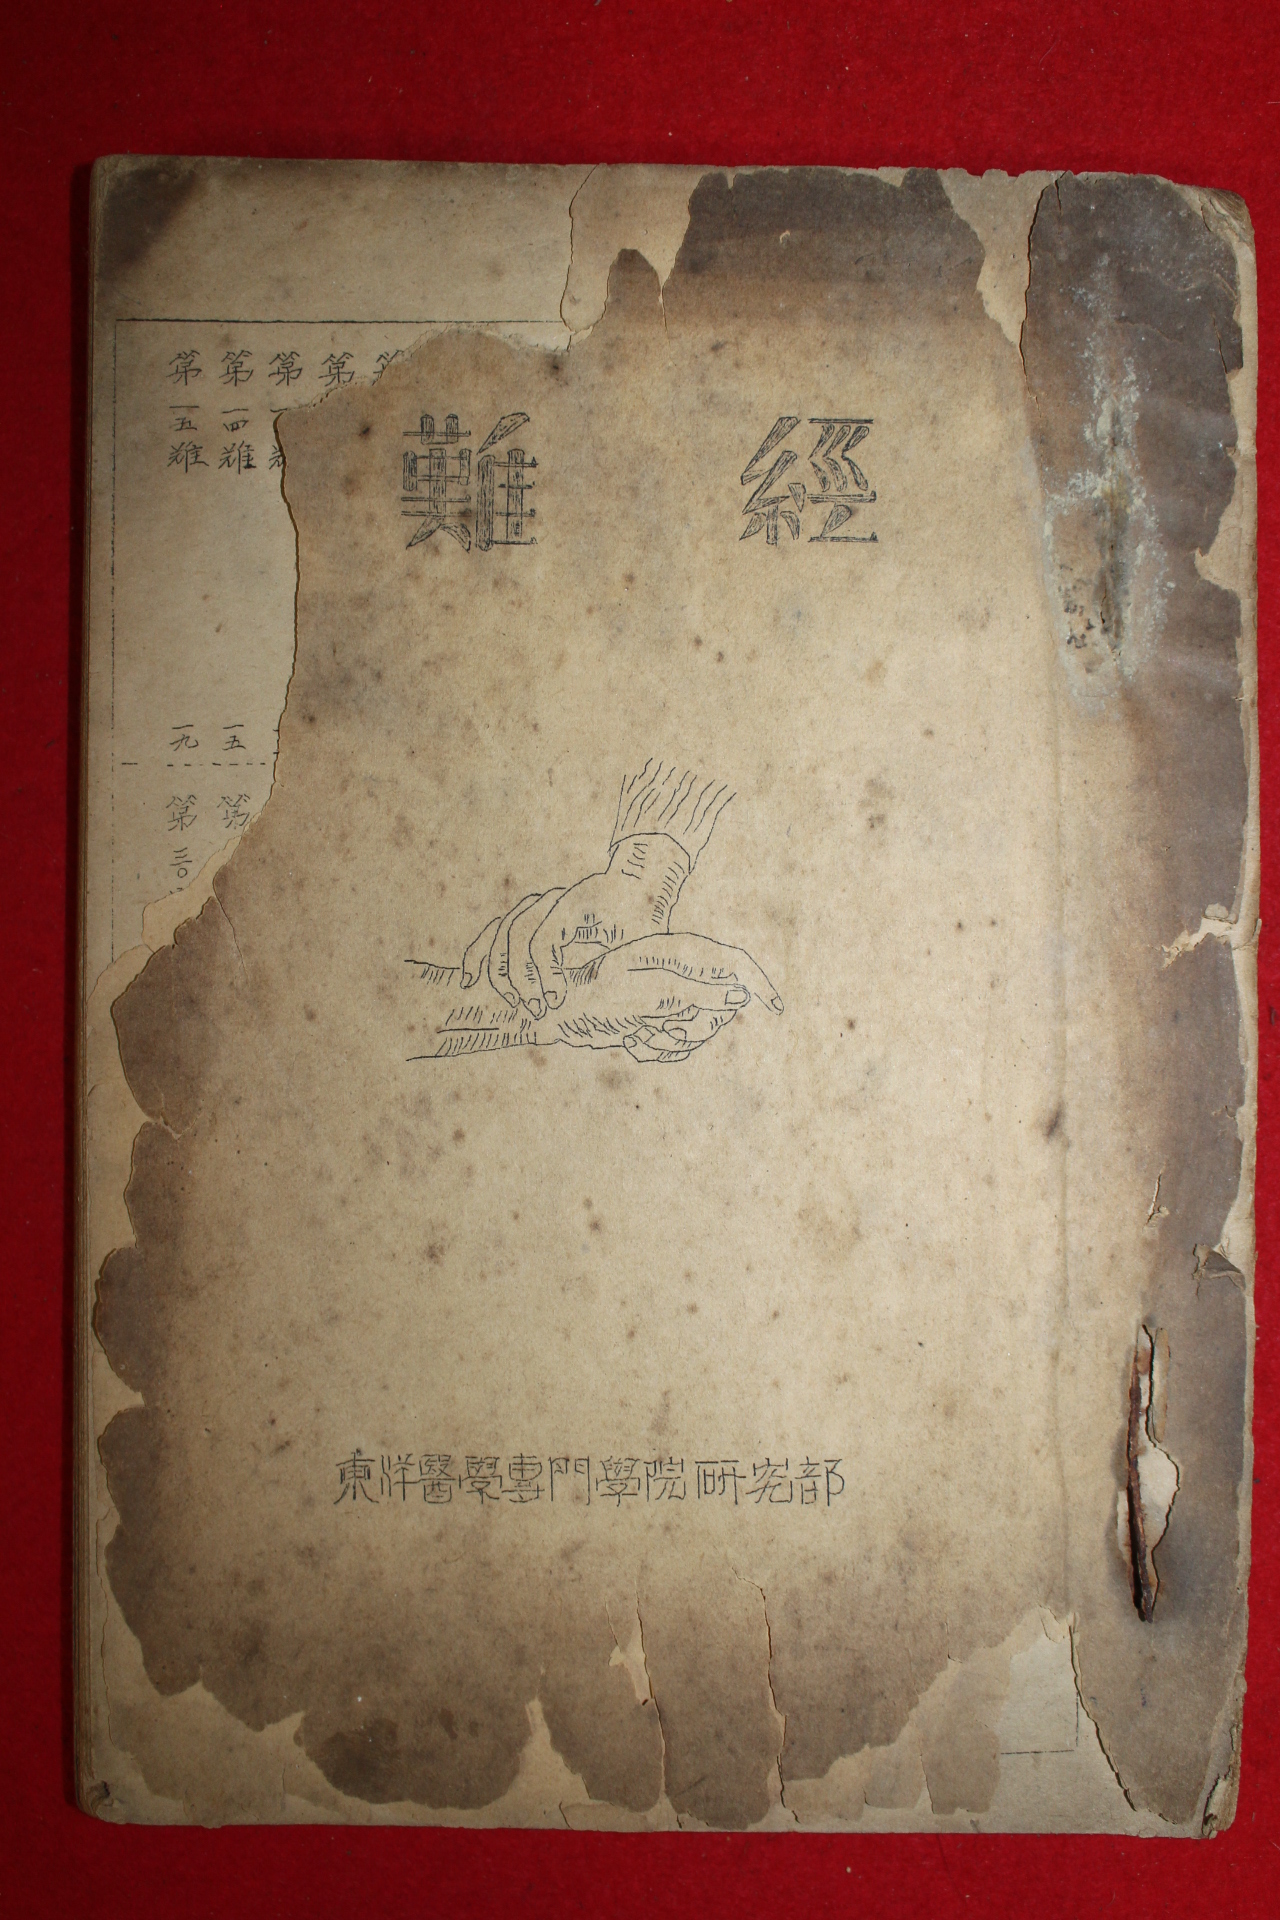 難經
第一五難
一九
第三〇
第一四難
一五
第
第
第
東洋醫學專門學院研究部